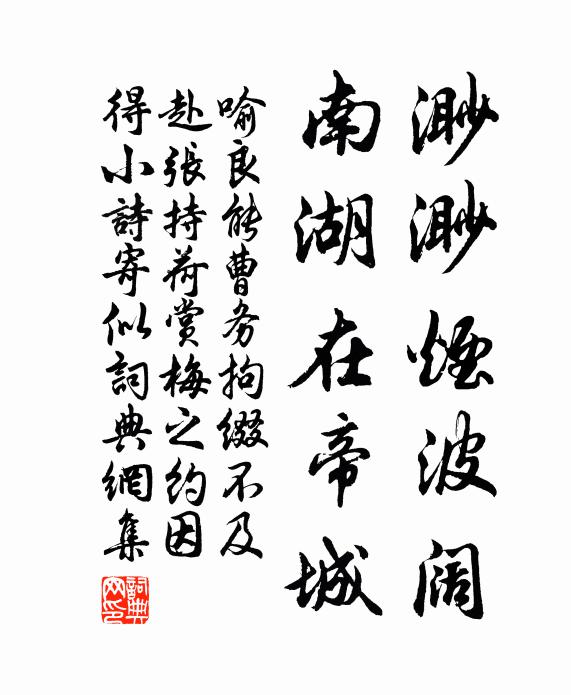 渺渺煙波阔
南湖在帝城
喻良能曹务拘缀不及
赴張持荷賞梅之約因
得小詩寄似詞典網集
詞典网印